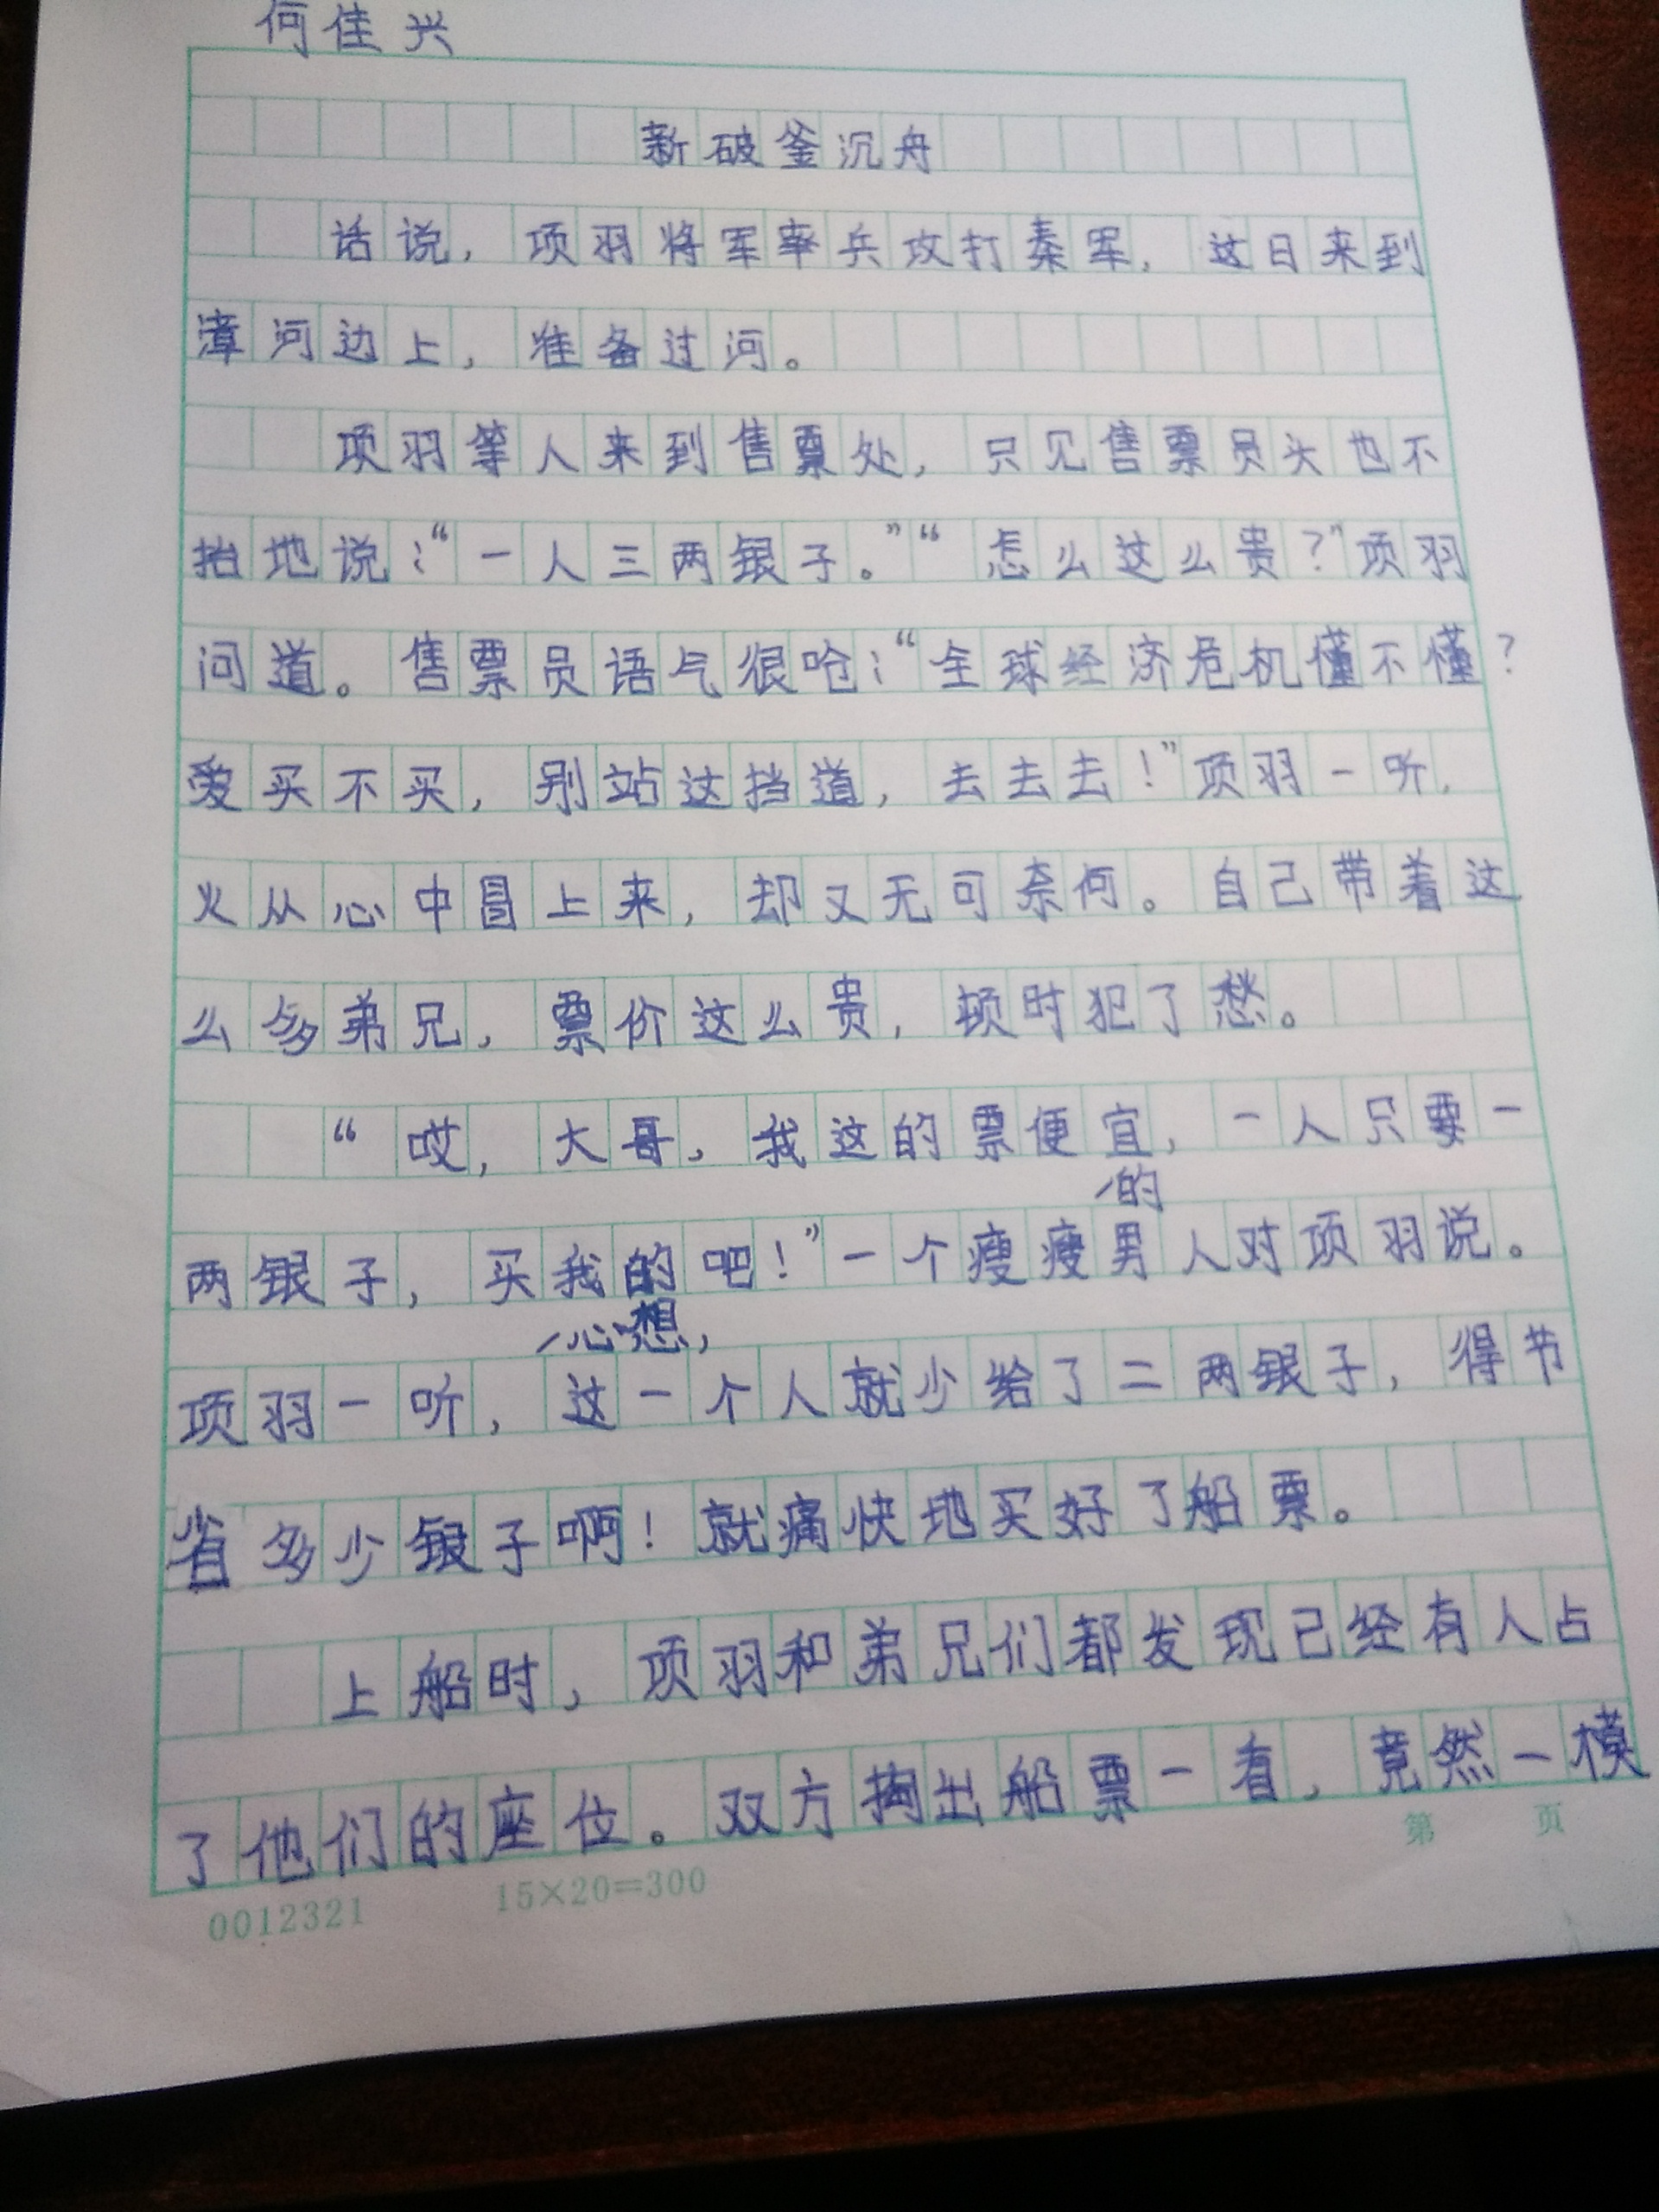 何佳兴
新破釜沉舟
话说，项羽将军率兵攻打秦军，这日来到
漳河边上，准备过河。
项羽等人来到售票处，只见售票员头也不
抬地说：“一人三两银子。”“怎么这么贵？”项羽
问道。售票员语气很呛：“全球经济危机懂不懂？
爱买不买，别站这挡道，去去去！”项羽一听，
火从心中冒上来，却又无可奈何。自己带着这
么多弟兄，票价这么贵，顿时犯了愁。
“哎，大哥，我这的票便宜，一人只要一
两银子，买我的吧！”一个瘦瘦的男人对项羽说。
项羽一听，心想，这一个人就少给了二两银子，得节
省多少银子啊！就痛快地买好了船票。
上船时，项羽和弟兄们都发现已经有人占
了他们的座位。双方掏出船票一看，竟然一模
第 页
0012321 15×20=300